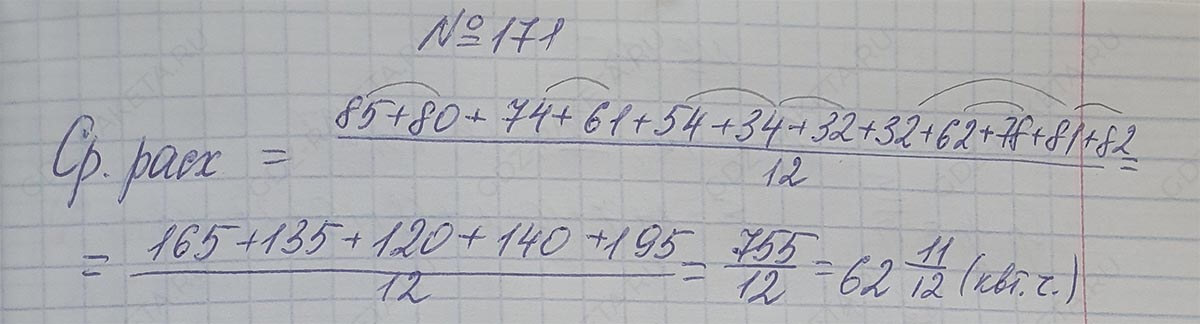 №171
Ср. расх = (85+80+74+61+54+34+32+32+62+78+81+82)/12 =
= (165+135+120+140+195)/12 = 755/12 = 62 11/12 (квт. ч.)